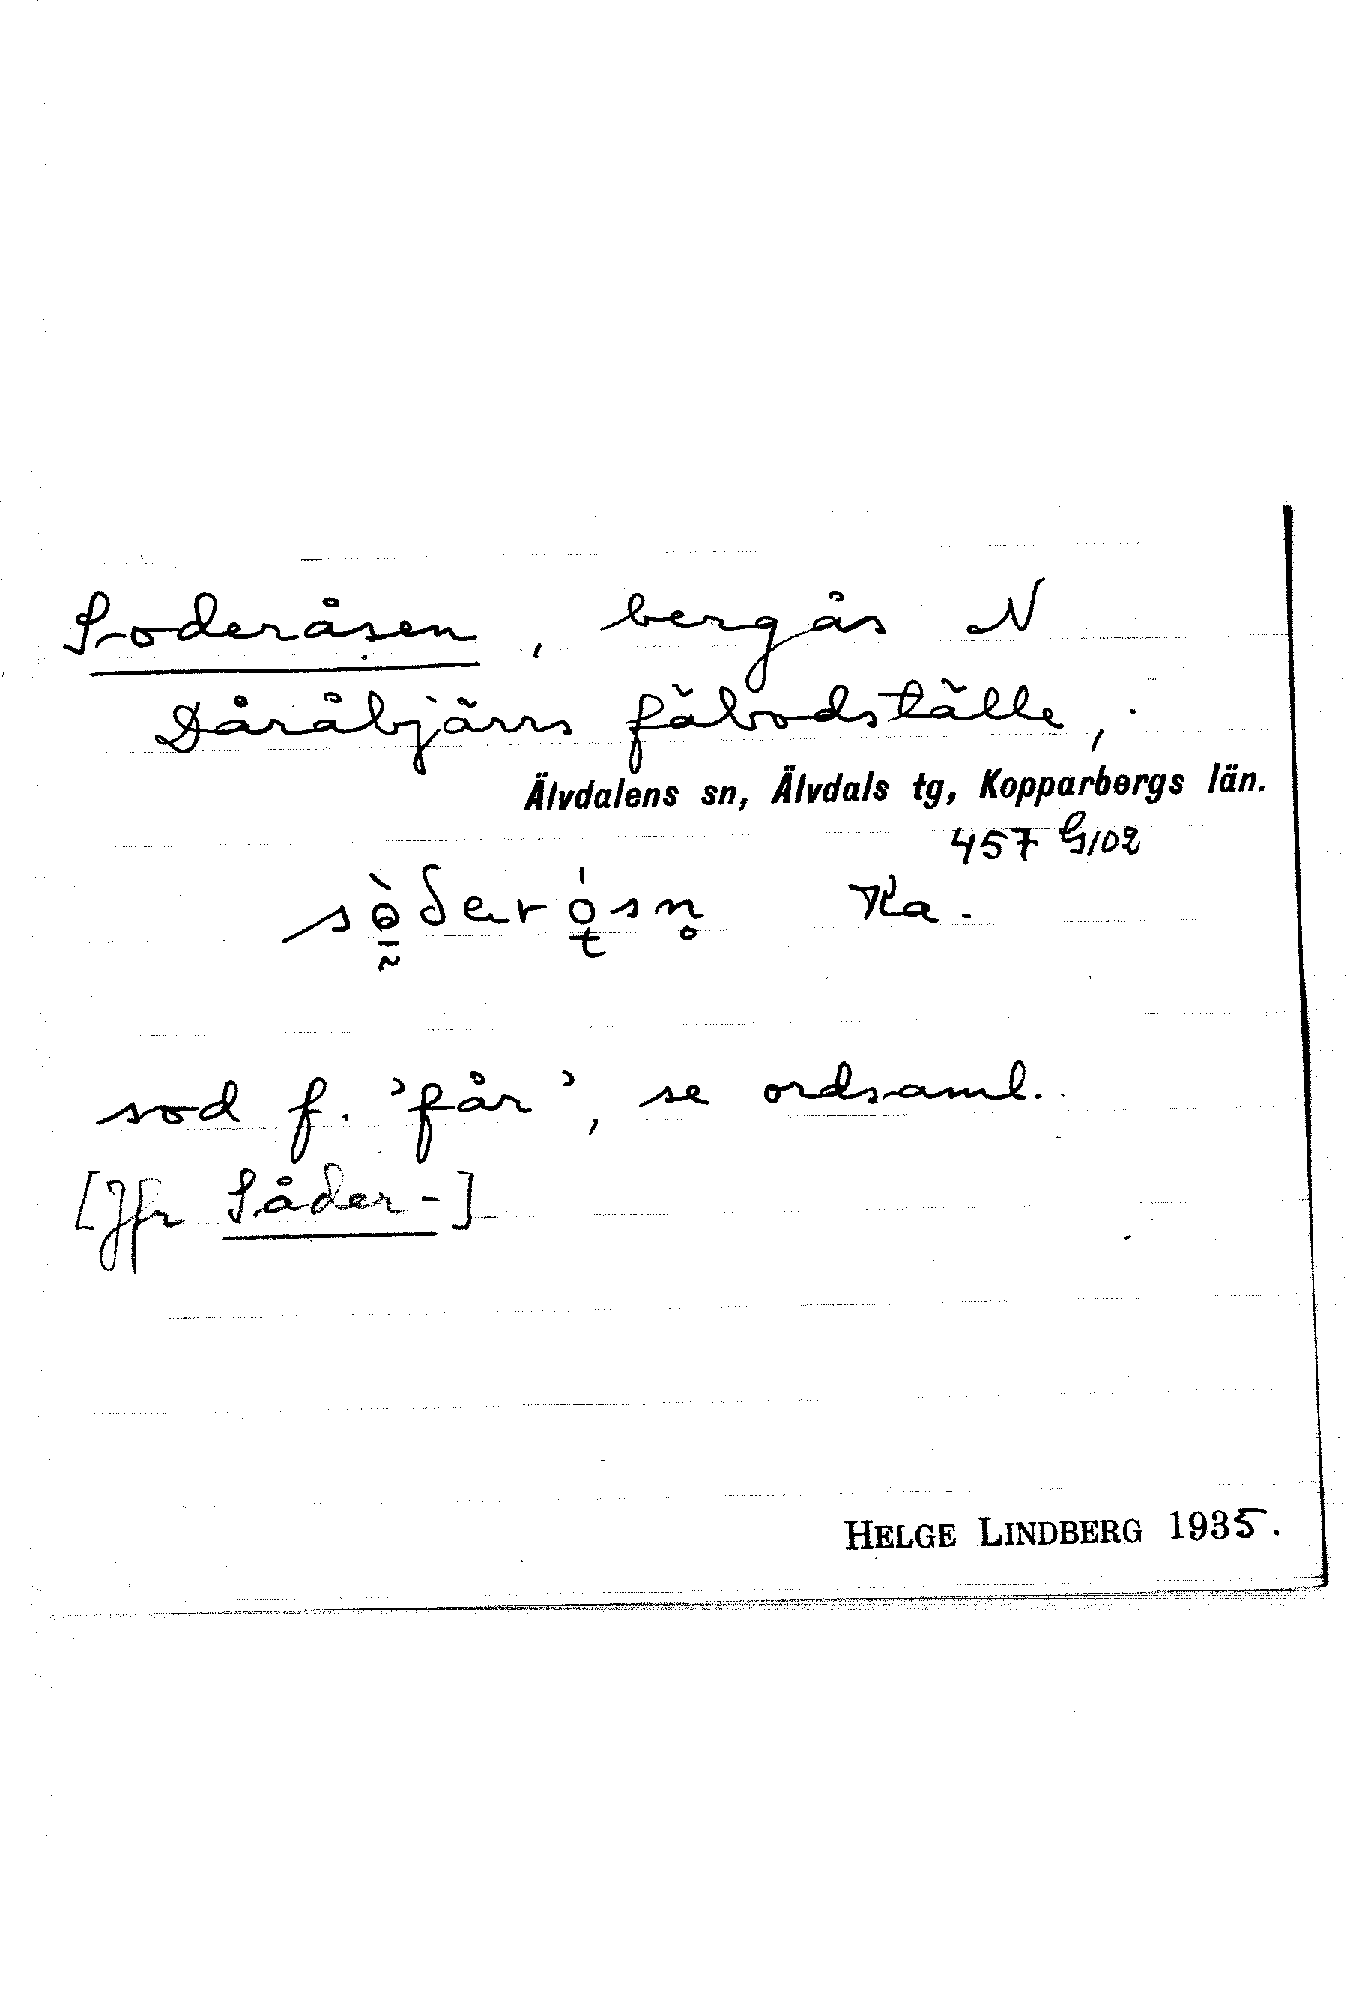 Soderåsen, bergås N
Dåråbjärrs fäbodställe,
Älvdalens sn, Älvdals tg, Kopparbergs län.
457 G/02
Ka.
sod f. 'får', se ordsaml.
[Jfr Såder-]
HELGE LINDBERG 1935.